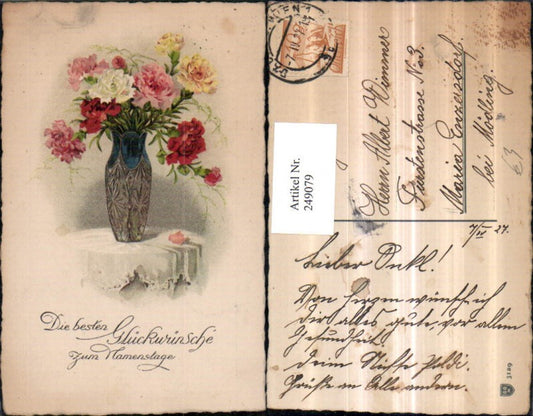 Die besten
Glückwünsche
zum Namenstage
WIEN 1
Artikel Nr.
249079
Herrn Albert Wimmer
No 3.
Maria Enzersdorf
bei Mödling.
7/IV 27.
Lieber Onkl!
Von Herzen wünsch ich
dir alles gute, vor allem
Gesundheit
deine Nichte Poldi.
Grüße an Alle andern.
3129